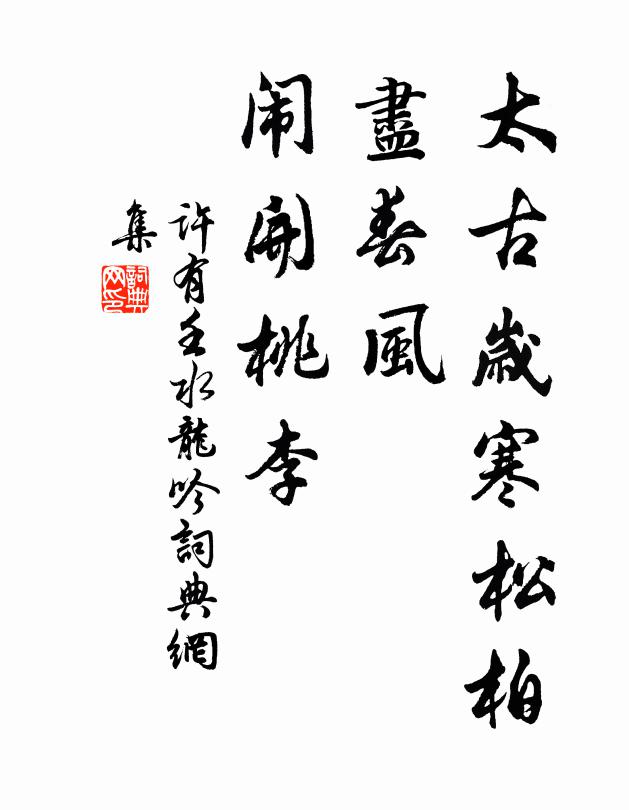 太古歲寒松柏
盡春風
闹開桃李
許有壬水龍吟詞典網
集
詞典
网印